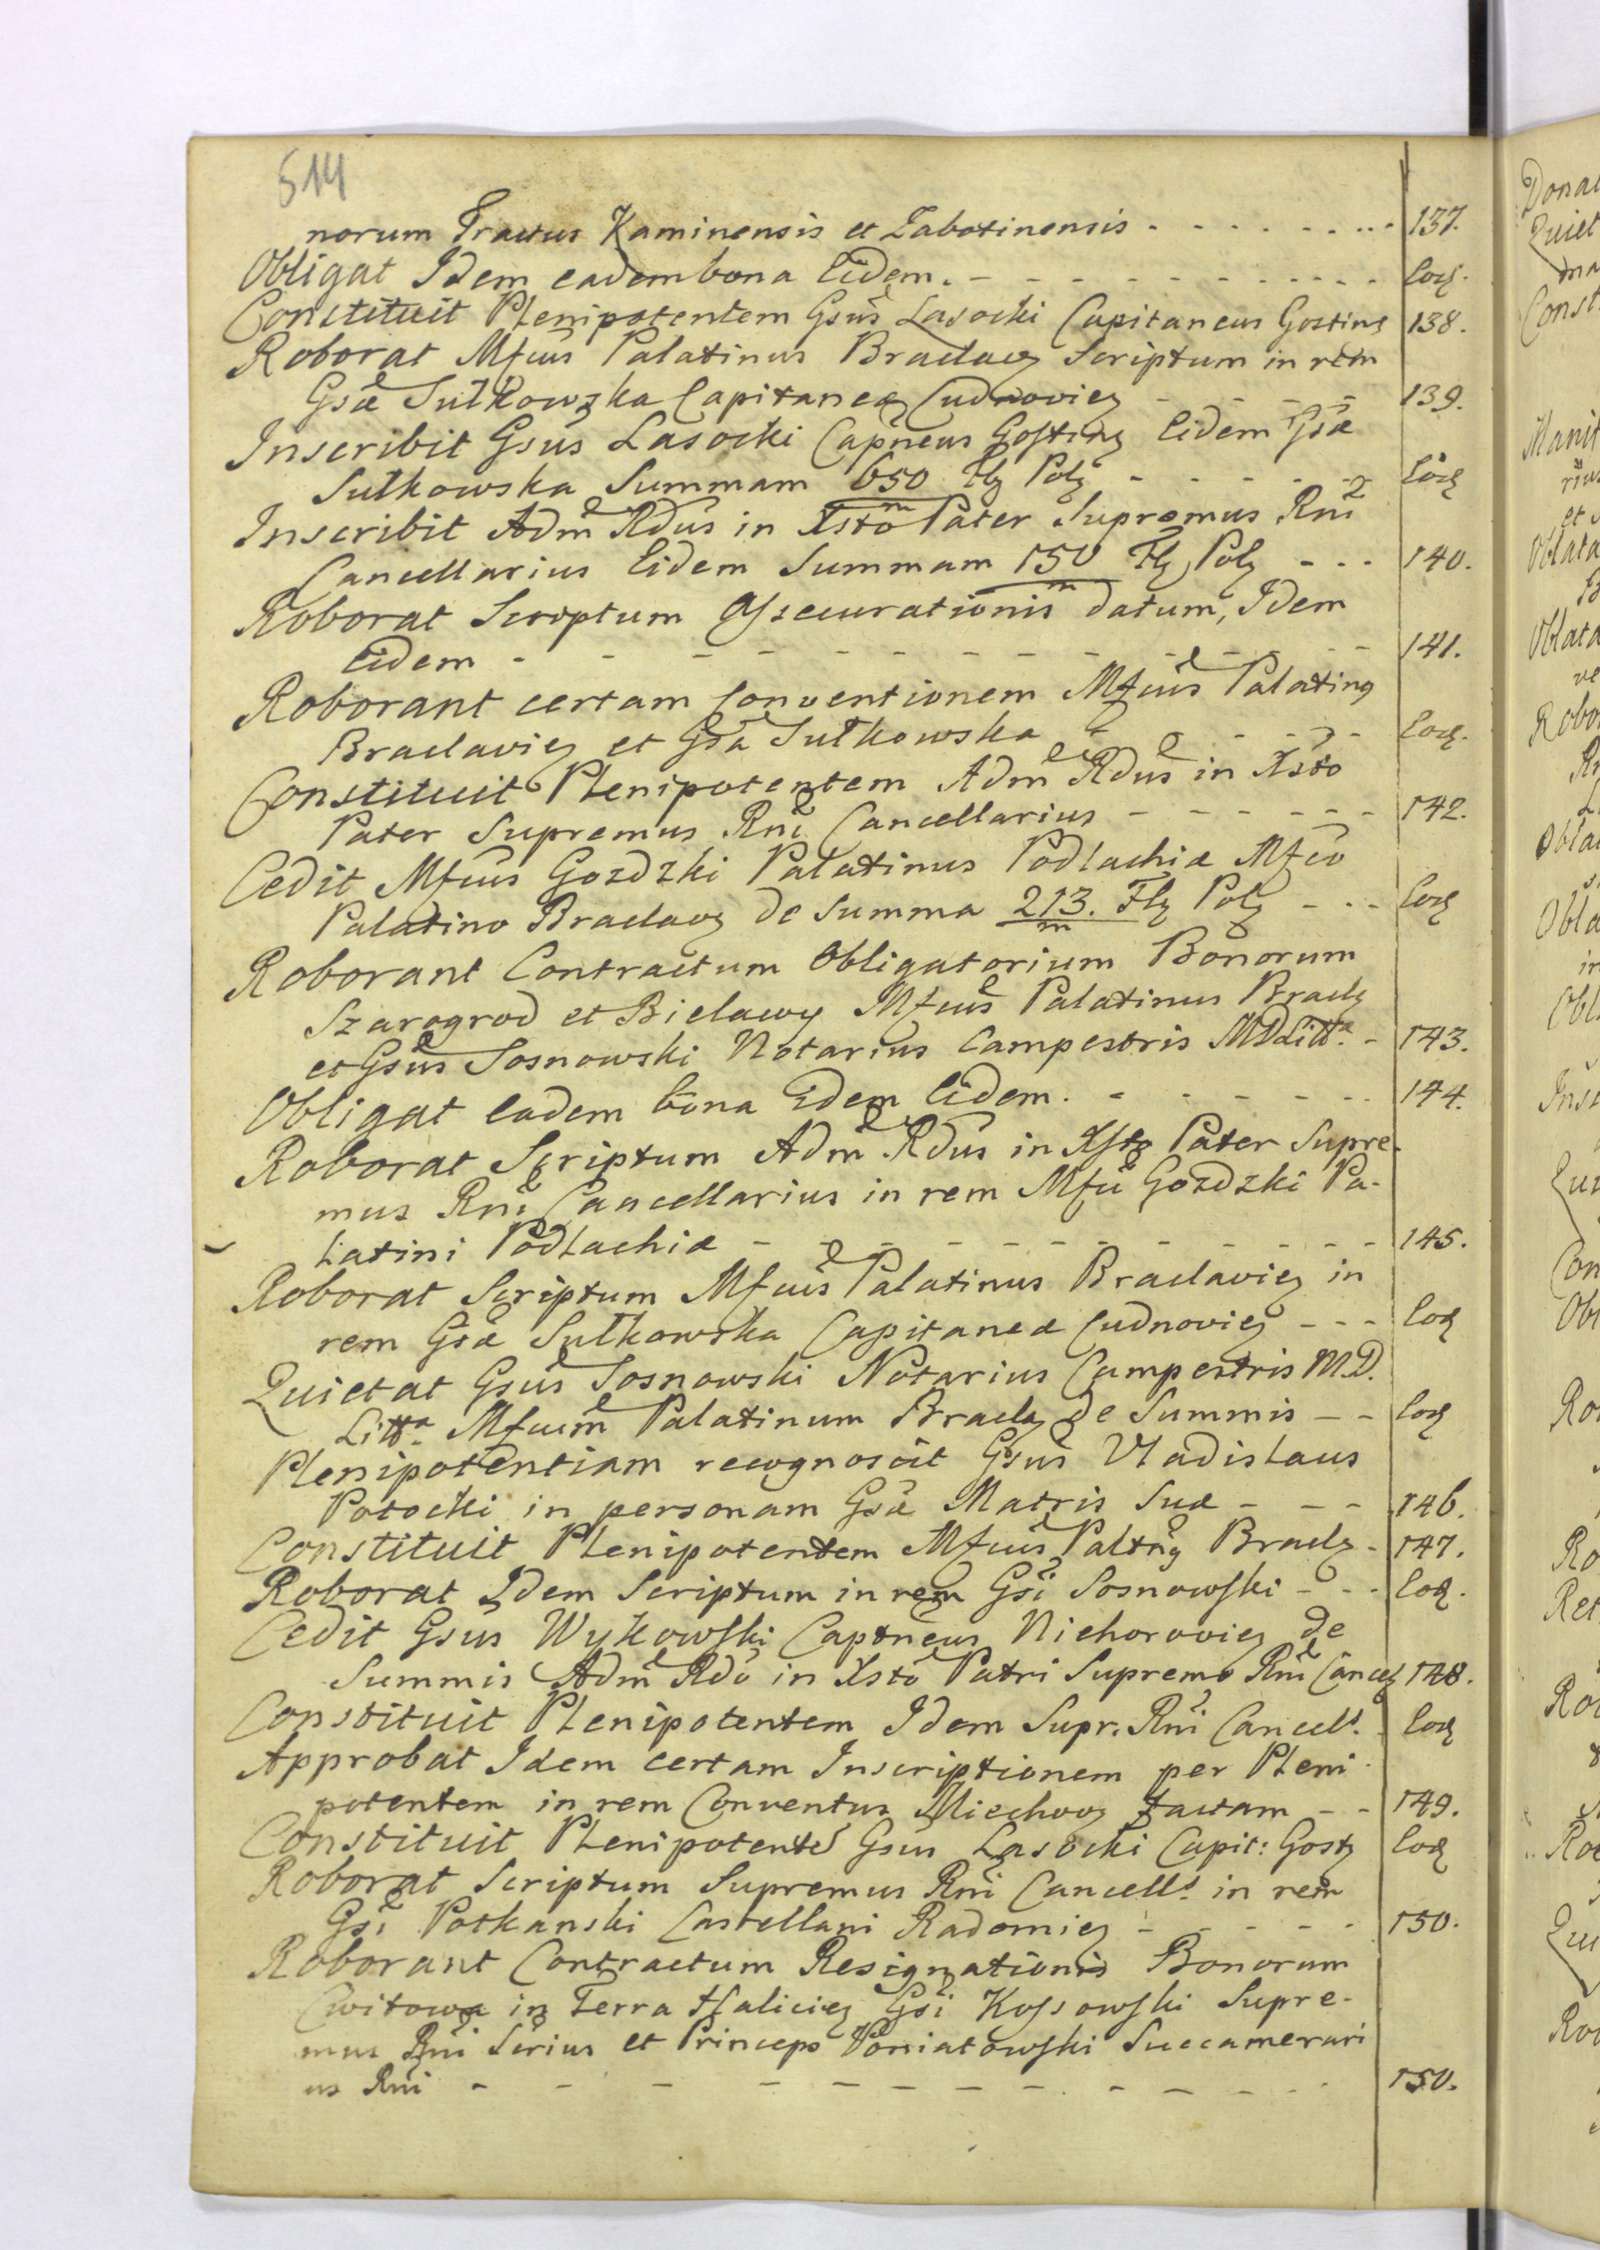 514
norum Tractus Kaminensis et Zabotinensis . . . . . . . . . 137.
Obligat Idem eadem bona Eidem. - - - - - - - - - - - Eod.
Constituit Plenipotentem Gsus Lasocki Capitaneus Gosting 138.
Roborat Mfcus Palatinus Braclavg Scriptum in rem
Gsæ Sułkowska Capitaneæ Cudnovieg - - - - - 139.
Inscribit Gsus Lasocki Capneus Gosting Eidem Gsæ
Sułkowska Summam 650 m Flg Polg - - - - - Eod
Inscribit Adm Rdus in Xsto Pater Supremus Rni
Cancellarius Eidem Summam 150 m Flg Polg - - - 140.
Roborat Scriptum Assecurationis datum, Idem
Eidem - - - - - - - - - - - - 141.
Roborant certam Conventionem Mfcus Palating
Braclavieg et Gsa Sułkowska - - - - - Eod.
Constituit Plenipotentem Adm Rdus in Xsto
Pater Supremus Rni Cancellarius - - - - - - 142.
Cedit Mfcus Gozdzki Palatinus Podlachiæ Mfco
Palatino Braclavg de Summa 213. m Flg Polg - - - Eod
Roborant Contractum Obligatorium Bonorum
Szarogrod et Bielawy Mfcus Palatinus Braclg
et Gsus Sosnowski Notarius Campestris MDLitt. - 143.
Obligat eadem bona Idem Eidem. - - - - - - 144.
Roborat Scriptum Adm Rdus in Xsto Pater Supre-
mus Rni Cancellarius in rem Mfci Gozdzki Pa-
latini Podlachiæ - - - - - - - - - - - 145.
Roborat Scriptum Mfcus Palatinus Braclavieg in
rem Gsæ Sułkowska Capitaneæ Cudnovieg - - - Eod
Quietat Gsus Sosnowski Notarius Campestris M.D.
Litt. Mfcum Palatinum Braclg de Summis - - Eod
Plenipotentiam recognoscit Gsus Vladislaus
Potocki in personam Gsæ Matris Suæ - - - 146.
Constituit Plenipotentem Mfcus Paltng Braclg - 147.
Roborat Idem Scriptum in rem Gsi Sosnowski - - - Eod.
Cedit Gsus Wykowski Captneus Niehorovieg de
Summis Adm Rdo in Xsto Patri Supremo Rni Cancelg 148.
Constituit Plenipotentem Idem Supr. Rni Cancells. - Eod
Approbat Idem certam Inscriptionem per Pleni-
potentem in rem Conventus Miechovg factam - - 149.
Constituit Plenipotente Gsus Lasocki Capit: Gostg Eod
Roborat Scriptum Supremus Rni Cancells. in rem
Gsi Potkanski Castellani Radomieg - - - - - 150.
Roborant Contractum Resignationis Bonorum
Cwitowa in Terra Halicieg Gsi Kossowski Supre-
mus Rni Serius et Princeps Poniatowski Succamerari
us Rni - - - - - - - - - - - - 150.